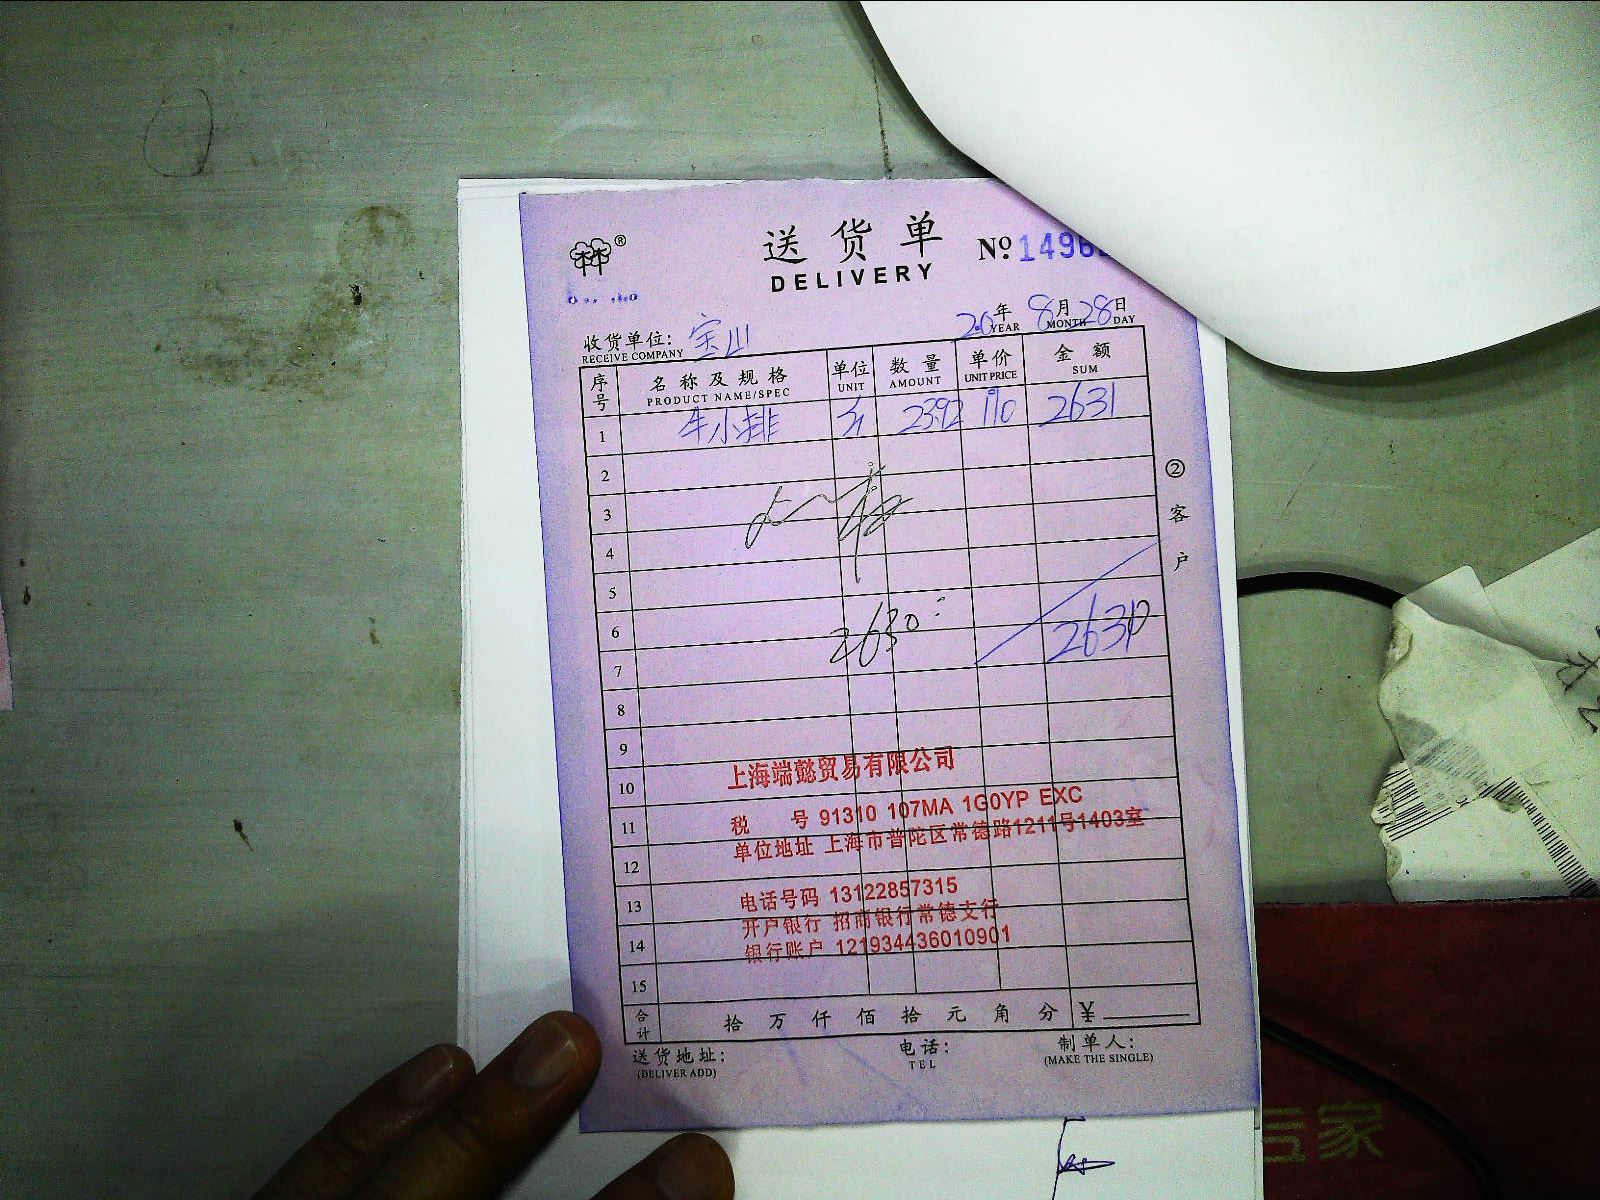 送货单
DELIVERY
№ 1496
收货单位: 宝山
RECEIVE COMPANY
20年 8月 28日
YEAR MONTH DAY
序号 名称及规格 单位 数量 单价 金额
PRODUCT NAME/SPEC UNIT AMOUNT UNIT PRICE SUM
1 牛小排 斤 2392 110 2631
2
3
4
5
6 2630 2631
7
8
9
10 上海端懿贸易有限公司
11 税 号 91310 107MA 1G0YP EXC
单位地址 上海市普陀区常德路1211号1403室
12
13 电话号码 13122857315
开户银行 招商银行常德支行
14 银行账户 121934436010901
15
合计 拾 万 仟 佰 拾 元 角 分 ¥
送货地址: 电话: 制单人:
(DELIVER ADD) TEL (MAKE THE SINGLE)
② 客户
后家